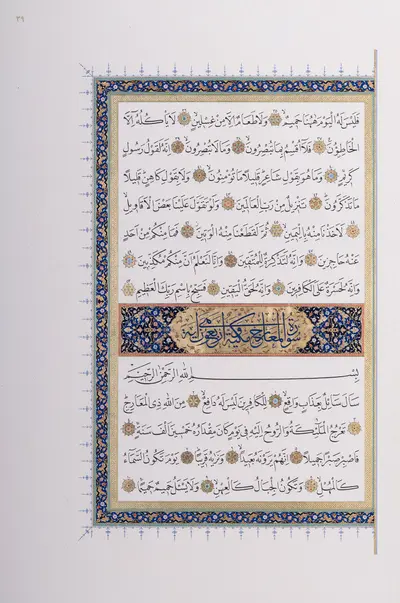 ٣٩
فَلَيْسَ لَهُ الْيَوْمَ هٰهُنَا حَمِيمٌ وَلَا طَعَامٌ إِلَّا مِنْ غِسْلِينٍ لَا يَأْكُلُهُ إِلَّا
الْخَاطِئُونَ فَلَا أُقْسِمُ بِمَا تُبْصِرُونَ وَمَا لَا تُبْصِرُونَ إِنَّهُ لَقَوْلُ رَسُولٍ
كَرِيمٍ وَمَا هُوَ بِقَوْلِ شَاعِرٍ قَلِيلًا مَا تُؤْمِنُونَ وَلَا بِقَوْلِ كَاهِنٍ قَلِيلًا
مَا تَذَكَّرُونَ تَنْزِيلٌ مِنْ رَبِّ الْعَالَمِينَ وَلَوْ تَقَوَّلَ عَلَيْنَا بَعْضَ الْأَقَاوِيلِ
لَأَخَذْنَا مِنْهُ بِالْيَمِينِ ثُمَّ لَقَطَعْنَا مِنْهُ الْوَتِينَ فَمَا مِنْكُمْ مِنْ أَحَدٍ
عَنْهُ حَاجِزِينَ وَإِنَّهُ لَتَذْكِرَةٌ لِلْمُتَّقِينَ وَإِنَّا لَنَعْلَمُ أَنَّ مِنْكُمْ مُكَذِّبِينَ
وَإِنَّهُ لَحَسْرَةٌ عَلَى الْكَافِرِينَ وَإِنَّهُ لَحَقُّ الْيَقِينِ فَسَبِّحْ بِاسْمِ رَبِّكَ الْعَظِيمِ
سورة المعارج مكية اربع واربعون آية
بِسْمِ اللّٰهِ الرَّحْمٰنِ الرَّحِيمِ
سَأَلَ سَائِلٌ بِعَذَابٍ وَاقِعٍ لِلْكَافِرِينَ لَيْسَ لَهُ دَافِعٌ مِنَ اللّٰهِ ذِي الْمَعَارِجِ
تَعْرُجُ الْمَلٰئِكَةُ وَالرُّوحُ إِلَيْهِ فِي يَوْمٍ كَانَ مِقْدَارُهُ خَمْسِينَ أَلْفَ سَنَةٍ
فَاصْبِرْ صَبْرًا جَمِيلًا إِنَّهُمْ يَرَوْنَهُ بَعِيدًا وَنَرٰيهُ قَرِيبًا يَوْمَ تَكُونُ السَّمَاءُ
كَالْمُهْلِ وَتَكُونُ الْجِبَالُ كَالْعِهْنِ وَلَا يَسْئَلُ حَمِيمٌ حَمِيمًا